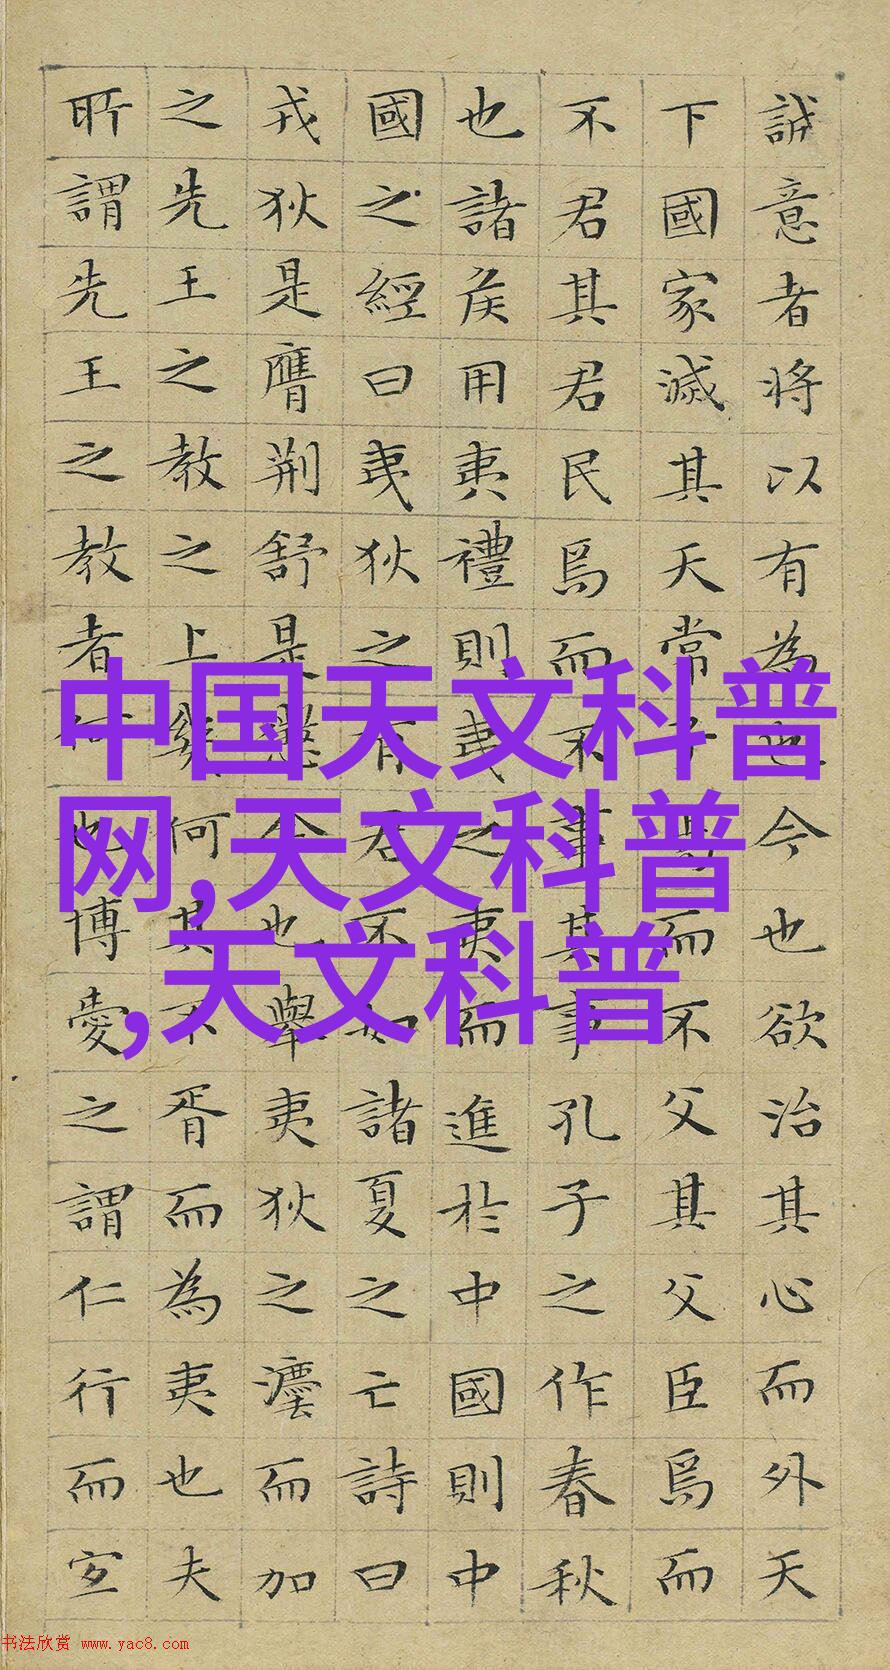 誠意者将以有為也今也欲治其心而外天
下國家滅其天常子焉而不父其父臣焉而
不君其君民焉而不事其事孔子之作春秋
也諸矦用夷禮則夷之夷而進於中國則中
國之經曰夷狄之有君不如諸夏之亡詩曰
戎狄是膺荆舒是懲今也舉夷狄之灋而加
之先王之教之上幾何其不胥而為夷也夫
所謂先王之教者何也博愛之謂仁行而宜
中国天文科普
网,天文科普
,天文科普
书法欣赏 www.yac8.com